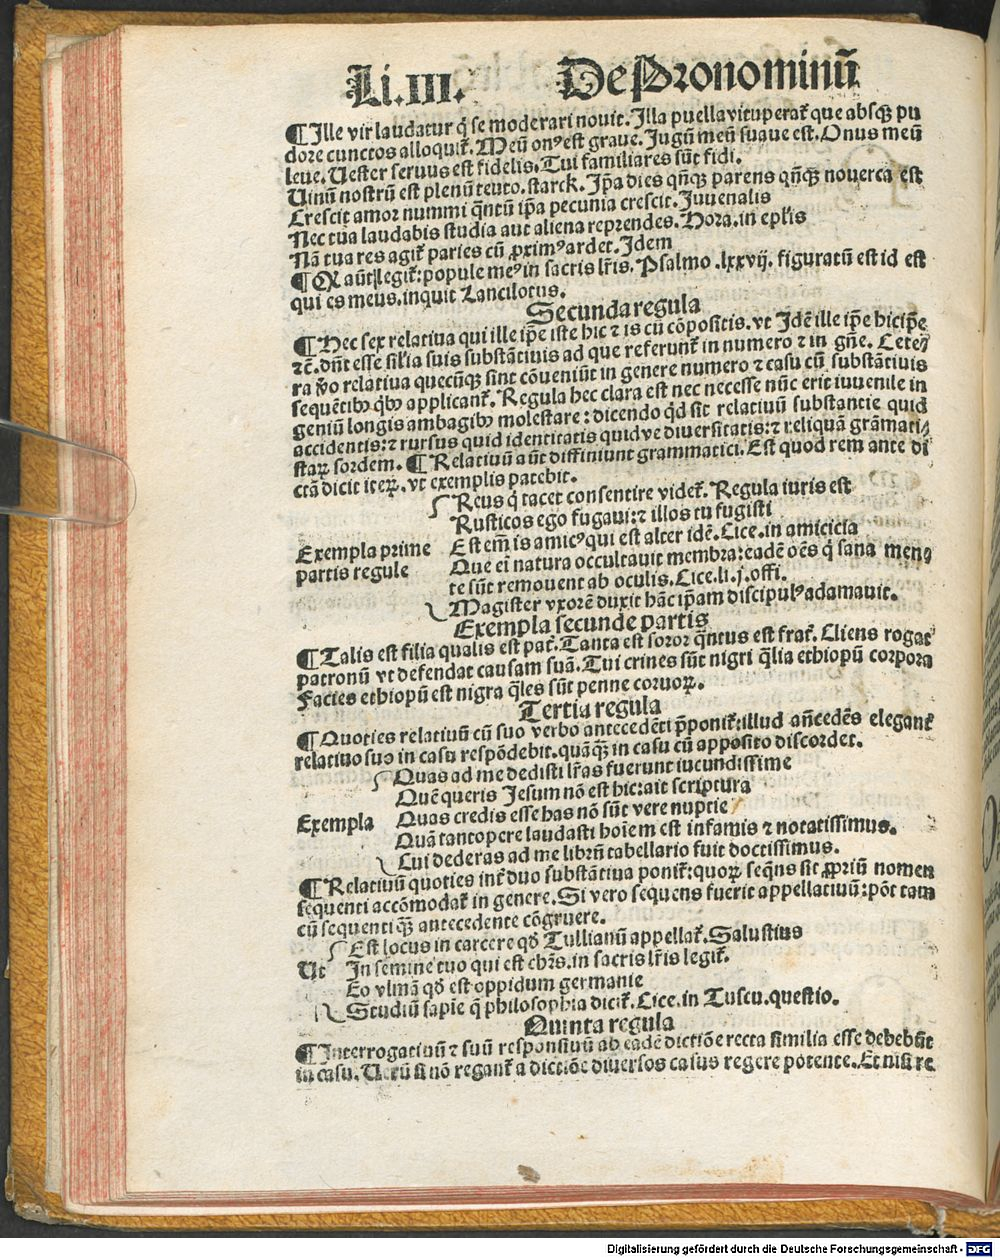 Li.III. De Pronominū
¶ Ille vir laudatur q̄ se moderari nouit. Illa puella vituperat᷑ que absqꝫ pu
dore cunctos alloquit᷑. Meū onꝰ est graue. Jugū meū suaue est. Onus meū
leue. Uester seruus est fidelis. Tui familiares sūt fidi.
Uinū nostrū est plenū teuto. starck. Ip̄a dies qn̄qꝫ parens qn̄qꝫ nouerca est
Crescit amor nummi qn̄tū ip̄a pecunia crescit. Juuenalis
Nec tua laudabis studia aut aliena reprendes. Hora. in ep̄lis
Nā tua res agit᷑ paries cū ꝓximꝰ ardet. Idem
¶ Qꝛ aūt legit᷑: popule meꝰ in sacris lr̄is. Psalmo .lxxvij. figuratū est id est
qui es meus. inquit Lancilotus.
Secunda regula
¶ Hec sex relatiua qui ille ip̄e iste hic ⁊ is cū cōpositis. vt Idē ille ip̄e hicip̄e
⁊c̄. dn̄t esse sil̄ia suis substātiuis ad que referunt᷑ in numero ⁊ in gn̄e. Ceteꝝ
ra ꝟo relatiua quecūqꝫ sint cōueniūt in genere numero ⁊ casu cū substātiuis
sequētibꝰ qͥbꝰ applicant᷑. Regula hec clara est nec necesse nūc erit iuuenile in
geniū longis ambagibꝰ molestare: dicendo qͥd sit relatiuū substantie quid
accidentis: ⁊ rursus quid identitatis quid ve diuersitatis: ⁊ reliquā grāmati⸗
staꝝ sordem. ¶ Relatiuū aūt diffiniunt grammatici. Est quod rem ante di
ctā dicit iteꝝ. vt exemplis patebit.
Exempla prime
partis regule
Reus q̄ tacet consentire videt᷑. Regula iuris est
Rusticos ego fugaui: ⁊ illos tu fugisti
Est em̄ is amicꝰ qui est alter idē. Cice. in amicicia
Que ei natura occultauit membra: eadē oēs q̄ sana men⸗
te sūt remouent ab oculis. Cice. li. j. offi.
Magister vxorē duxit hāc ip̄am discipulꝰ adamauit.
Exempla secunde partis
¶ Talis est filia qualis est pat᷑. Tanta est soror qn̄tus est frat᷑. Cliens rogat
patronū vt defendat causam suā. Tui crines sūt nigri q̄lia ethiopū corpora
Facies ethiopū est nigra q̄les sūt penne coruoꝝ.
Tertia regula
¶ Quoties relatiuū cū suo verbo antecedēti p̄ponit᷑: illud an̄cedēs elegant᷑
relatiuo suo in casu respōdebit. quāqꝫ in casu cū apposito discordet.
Exempla
Quas ad me dedisti lr̄as fuerunt iucundissime
Quē queris Jesum nō est hic: ait scriptura
Quas credis esse has nō sūt vere nuptie
Quā tantopere laudasti hoīem est infamis ⁊ notatissimus.
Cui dederas ad me librū tabellario fuit doctissimus.
¶ Relatiuū quoties int᷑ duo substātiua ponit᷑: quoꝝ seqn̄s sit ꝓpriū nomen
sequenti accōmodat᷑ in genere. Si vero sequens fuerit appellatiuū: pōt tam
cū sequenti qͣꝫ antecedente cōgruere.
Ut
Est locus in carcere qd̄ Tullianū appellat᷑. Salustius
In semine tuo qui est chr̄s. in sacris lr̄is legit᷑.
Eo vlmā qd̄ est oppidum germanie
Studiū sapie q̄ philosophia dicit᷑. Cice. in Tuscu. questio.
Quinta regula
¶ Interrogatiuū ⁊ suū responsiuū ab eadē dictiōe recta similia esse debebūt
in casu. Uerū si nō regant᷑ a dictiōe diuersos casus regere potente. Et nisi re
Digitalisierung gefördert durch die Deutsche Forschungsgemeinschaft - DFG